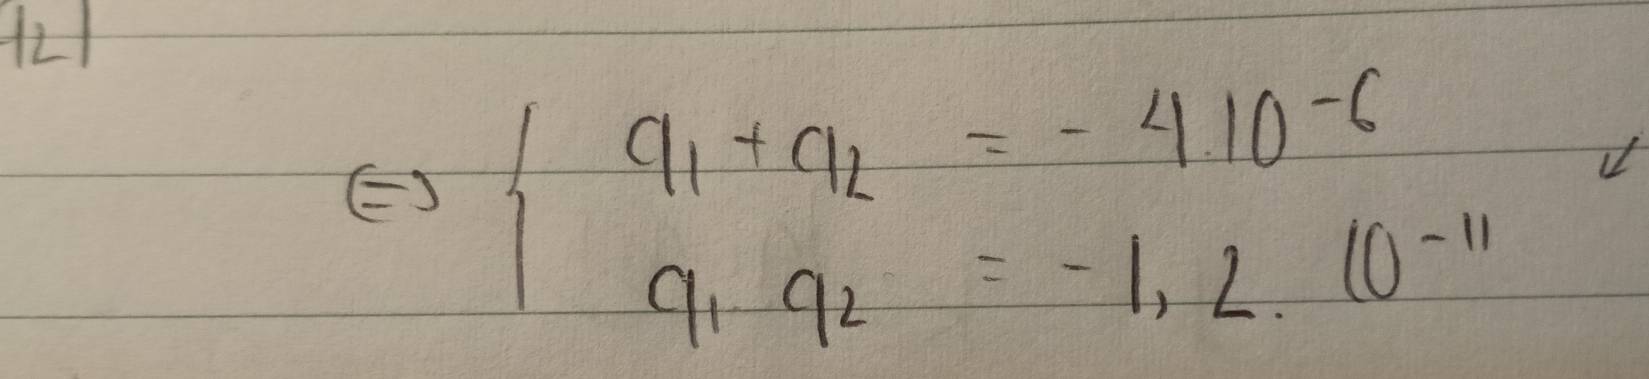 q2|
⇔ { q1 + q2 = - 4.10^-6
q1 q2 = - 1,2. 10^-11